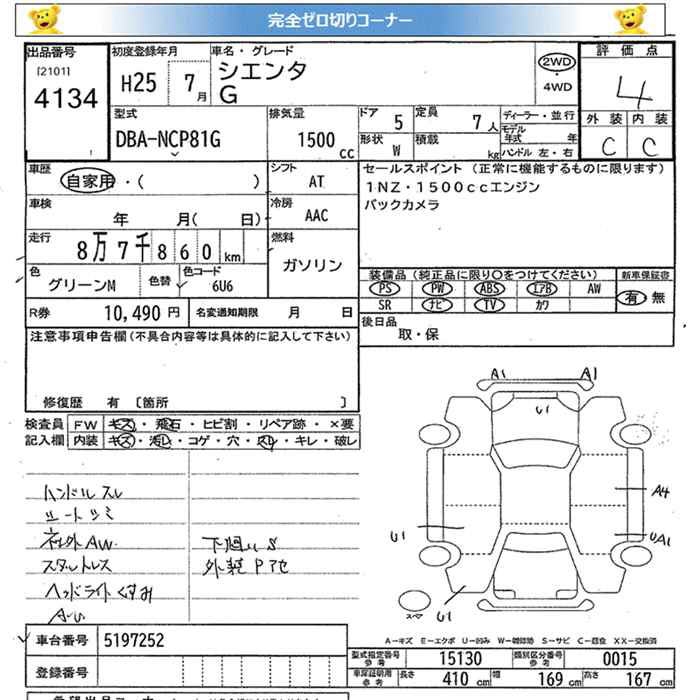 完全ゼロ切りコーナー
出品番号 初度登録年月 車名・グレード 評価点
[2101] シエンタ 2WD
4134 H25 7月 G ・ 4WD 4
型式 排気量 ドア 5 定員 7人 ディーラー・並行 外装 内装
DBA-NCP81G 1500cc 形状 W 積載 kg モデル年式 年 C C
ハンドル 左・右
車歴 シフト セールスポイント (正常に機能するものに限ります)
自家用・( ) AT 1NZ・1500ccエンジン
車検 冷房 バックカメラ
年 月( 日) AAC
走行 燃料
8万7千860km ガソリン
色 色替 色コード 装備品(純正品に限り○をつけてください) 新車保証書
グリーンM 6U6 PS PW ABS エアB AW 有・無
R券 10,490円 名変通知期限 月 日 SR ナビ TV カワ
注意事項申告欄(不具合内容等は具体的に記入して下さい) 後日品
取・保
修復歴 有 〔箇所 〕
検査員 FW キズ・飛石・ヒビ割・リペア跡・×要
記入欄 内装 キズ・汚れ・コゲ・穴・スレ・キレ・破レ
A1 A1
U1
A4
U1 UA1
U1
ハンドルスレ
シートシミ
社外AW 下廻りS
スタットレス 外装Pアセ
ヘッドライトくすみ
A-U
A-キズ E-エクボ U-凹み W-補修跡 S-サビ C-腐食 XX-交換済
車台番号 5197252
型式指定番号 参考 15130 類別区分番号 参考 0015
登録番号 車庫証明用 参考 長さ 410cm 幅 169cm 高さ 167cm
希望出品コーナー